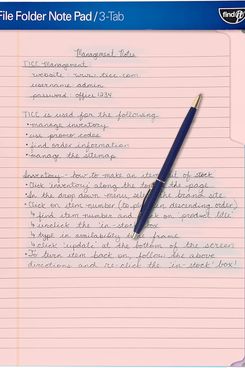 File Folder Note Pad / 3-Tab
find It
Management Notes
TICC Management
website - www.ticc.com
username admin
password: office1234
TICC is used for the following
• manage inventory
• use promo codes
• find order information
• manage the sitemap
Inventory - how to make an item out of stock
• Click 'inventory' along the top of the page
• In the drop down menu, the brand site
• Click on item number (to in descending order)
↳ find item number and click on 'product title'
↳ unclick the 'in-stock' box
↳ type in availability time frame
↳ click 'update' at the bottom of the screen
• To turn item back on, follow the above
directions and re-click the 'in-stock' box!